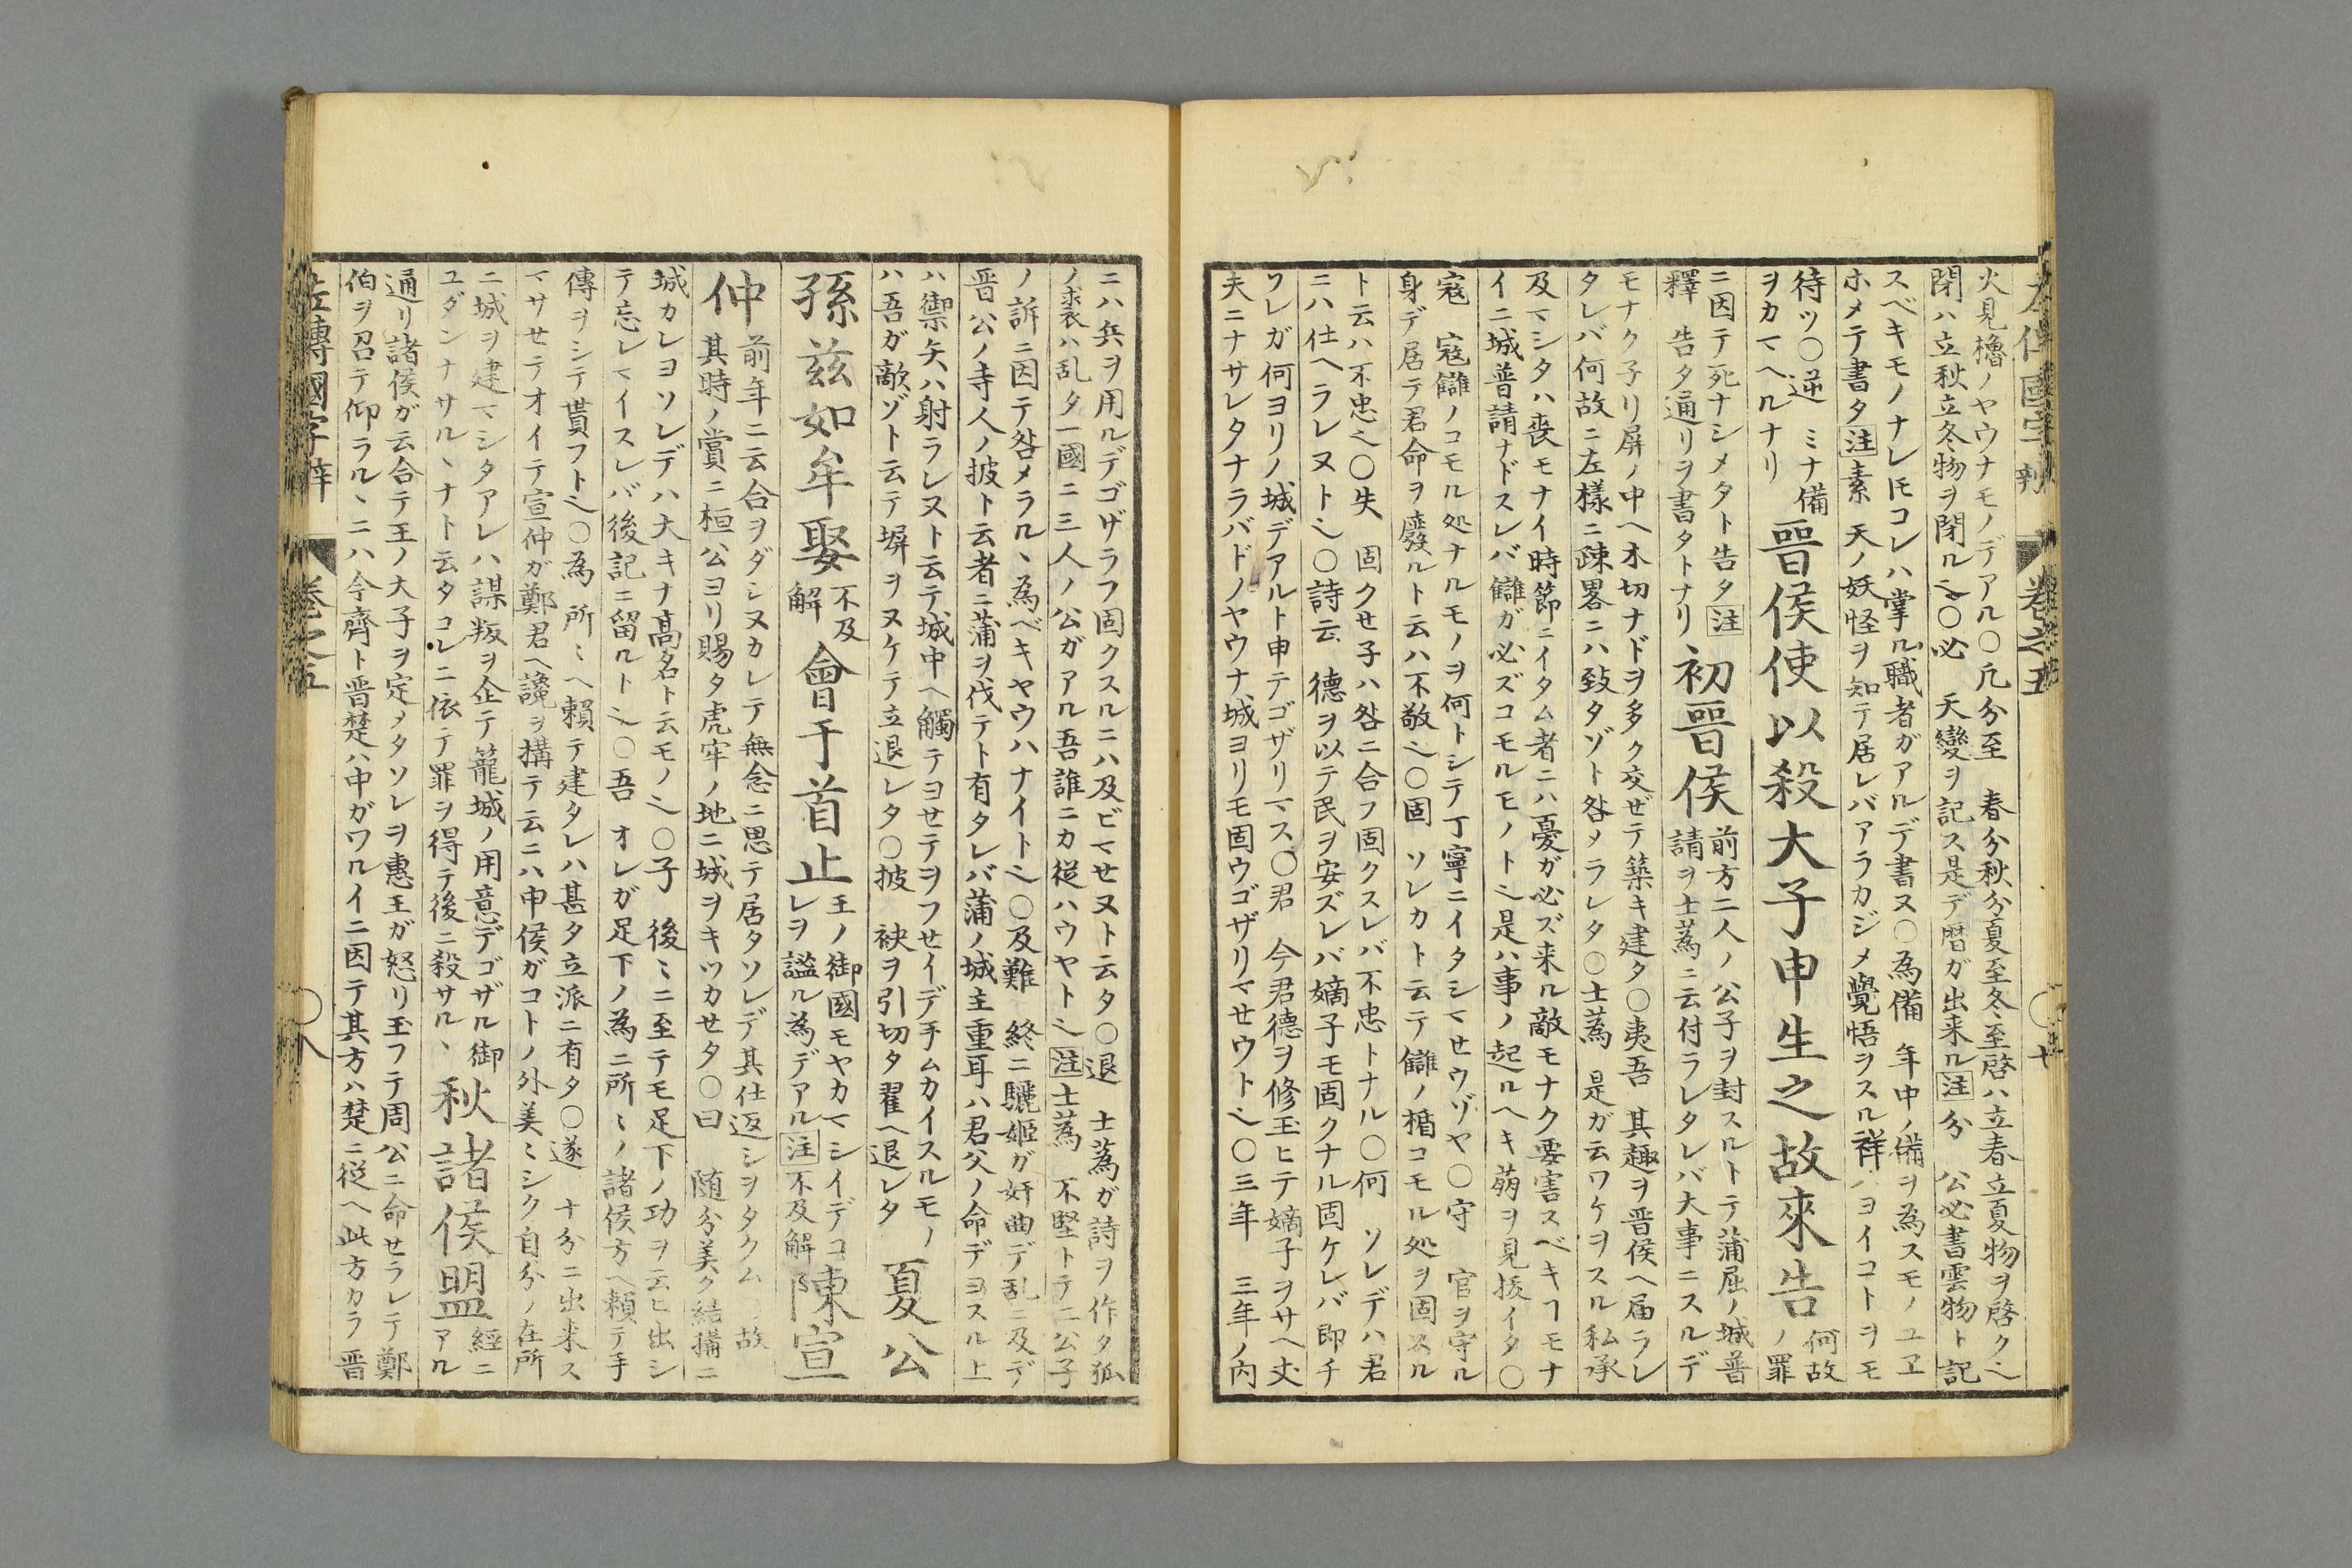 火見櫓ノヤウナモノデアル〇凡分至　春分秋分夏至冬至啓ハ立春立夏物ヲ啓ク〻
閉ハ立秋立冬物ヲ閉ル〻〇必　天變ヲ記ス是デ暦ガ出来ル注分　公必書雲物ト記
スベキモノナレ𪜈コレハ掌ル職者ガアルデ書ス〇為備　年中ノ備ヲ為スモノユヱ
ホメテ書タ注素　天ノ妖怪ヲ知テ居レバアラカジメ覺悟ヲスル祥ハヨイコトヲモ
待ツ〇逆　ミナ備
ヲカマヘルナリ
晋侯使以殺大子申生之故來告
何故
ノ罪
ニ因テ死ナシメタト告タ注
釋　告タ通リヲ書タトナリ
初晋侯
前方二人ノ公子ヲ封スルトテ蒲屈ノ城普
請ヲ士蒍ニ云付ラレタレバ大事ニスルデ
モナク子リ屏ノ中ヘ木切ナドヲ多ク交ゼテ築キ建タ〇夷吾　其趣ヲ晋侯ヘ届ラレ
タレバ何故ニ左様ニ疎畧ニハ致タゾト咎メラレタ〇士蒍　是ガ云ワケヲスル私承
及マシタハ喪モナイ時節ニイタム者ニハ憂ガ必ズ来ル敵モナク要害スベキヿモナ
イニ城普請ナドスレバ讎ガ必ズコモルモノト〻是ハ事ノ起ルヘキ萠ヲ見抜イタ〇
寇　寇讎ノコモル処ナルモノヲ何トシテ丁寧ニイタシマセウゾヤ〇守　官ヲ守ル
身デ居テ君命ヲ廢ルト云ハ不敬〻〇固　ソレカト云テ讎ノ楯コモル処ヲ固スル
ト云ハ不忠〻〇失　固クセ子ハ咎ニ合フ固クスレバ不忠トナル〇何　ソレデハ君
ニハ仕ヘラレヌト〻〇詩云　德ヲ以テ民ヲ安ズレバ嫡子モ固クナル固ケレバ即チ
ワレガ何ヨリノ城デアルト申テゴザリマス〇君　今君德ヲ修玉ヒテ嫡子ヲサヘ丈
夫ニナサレタナラバドノヤウナ城ヨリモ固ウゴザリマセウト〻〇三年　三年ノ内
ニハ兵ヲ用ルデゴザラフ固クスルニハ及ビマセヌト云タ〇退　士蒍ガ詩ヲ作タ狐
ノ裘ハ乱タ一國ニ三人ノ公ガアル吾誰ニカ從ハウヤト〻注士蒍　不堅トテ二公子
ノ訴ニ因テ咎メラル、為ベキヤウハナイト〻〇及難　終ニ驪姬ガ奸曲デ乱ニ及デ
晋公ノ寺人ノ披ト云者ニ蒲ヲ伐テト有タレバ蒲ノ城主重耳ハ君父ノ命デヨスル上
ハ禦矢ハ射ラレヌト云テ城中ヘ觸テヨセテヲフセイデ手ムカイスルモノ
ハ吾ガ敵ゾト云テ塀ヲヌケテ立退レタ〇披　袂ヲ引切タ翟ヘ退レタ
夏公
孫茲如牟娶
不及
解
會于首止
王ノ御國モヤカマシイデコ
レヲ謐ル為デアル注不及解
陳宣
仲
前年ニ云合ヲダシヌカレテ無念ニ思テ居タソレデ其仕返シヲタクム〇故
其時ノ賞ニ桓公ヨリ賜タ虎牢ノ地ニ城ヲキツカセタ〇曰　随分美ク結搆ニ
城カレヨソレデハ大キナ高名ト云モノ〻〇子　後〻ニ至テモ足下ノ功ヲ云ヒ出シ
テ忘レマイスレバ後記ニ留ルト〻〇吾　オレガ足下ノ為ニ所〻ノ諸侯方ヘ頼テ手
傳ヲシテ貰フト〻〇為　所〻ヘ賴テ建タレハ甚タ立派ニ有タ〇遂　十分ニ出来ス
マサセテオイテ宣仲ガ鄭君ヘ讒ヲ搆テ云ニハ申侯ガコトノ外美〻シク自分ノ在所
ニ城ヲ建マシタアレハ謀叛ヲ企テ籠城ノ用意デゴザル御
ユダンナサル、ナト云タコレニ依テ罪ヲ得テ後ニ殺サル、
秋諸侯盟
經ニ
アル
通リ諸侯ガ云合テ王ノ大子ヲ定メタソレヲ惠王ガ怒リ玉フテ周公ニ命セラレテ鄭
伯ヲ召テ仰ラル、ニハ今齊ト晋楚ハ中ガワルイニ因テ其方ハ楚ニ從ヘ此方カラ晋
左傳國字辯　卷之五　〇八